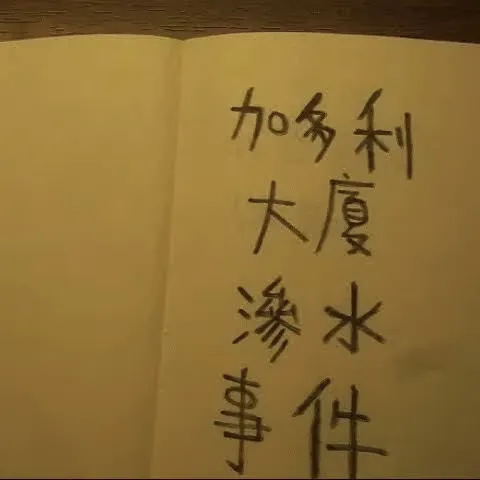 加多利
大廈
滲水
事件